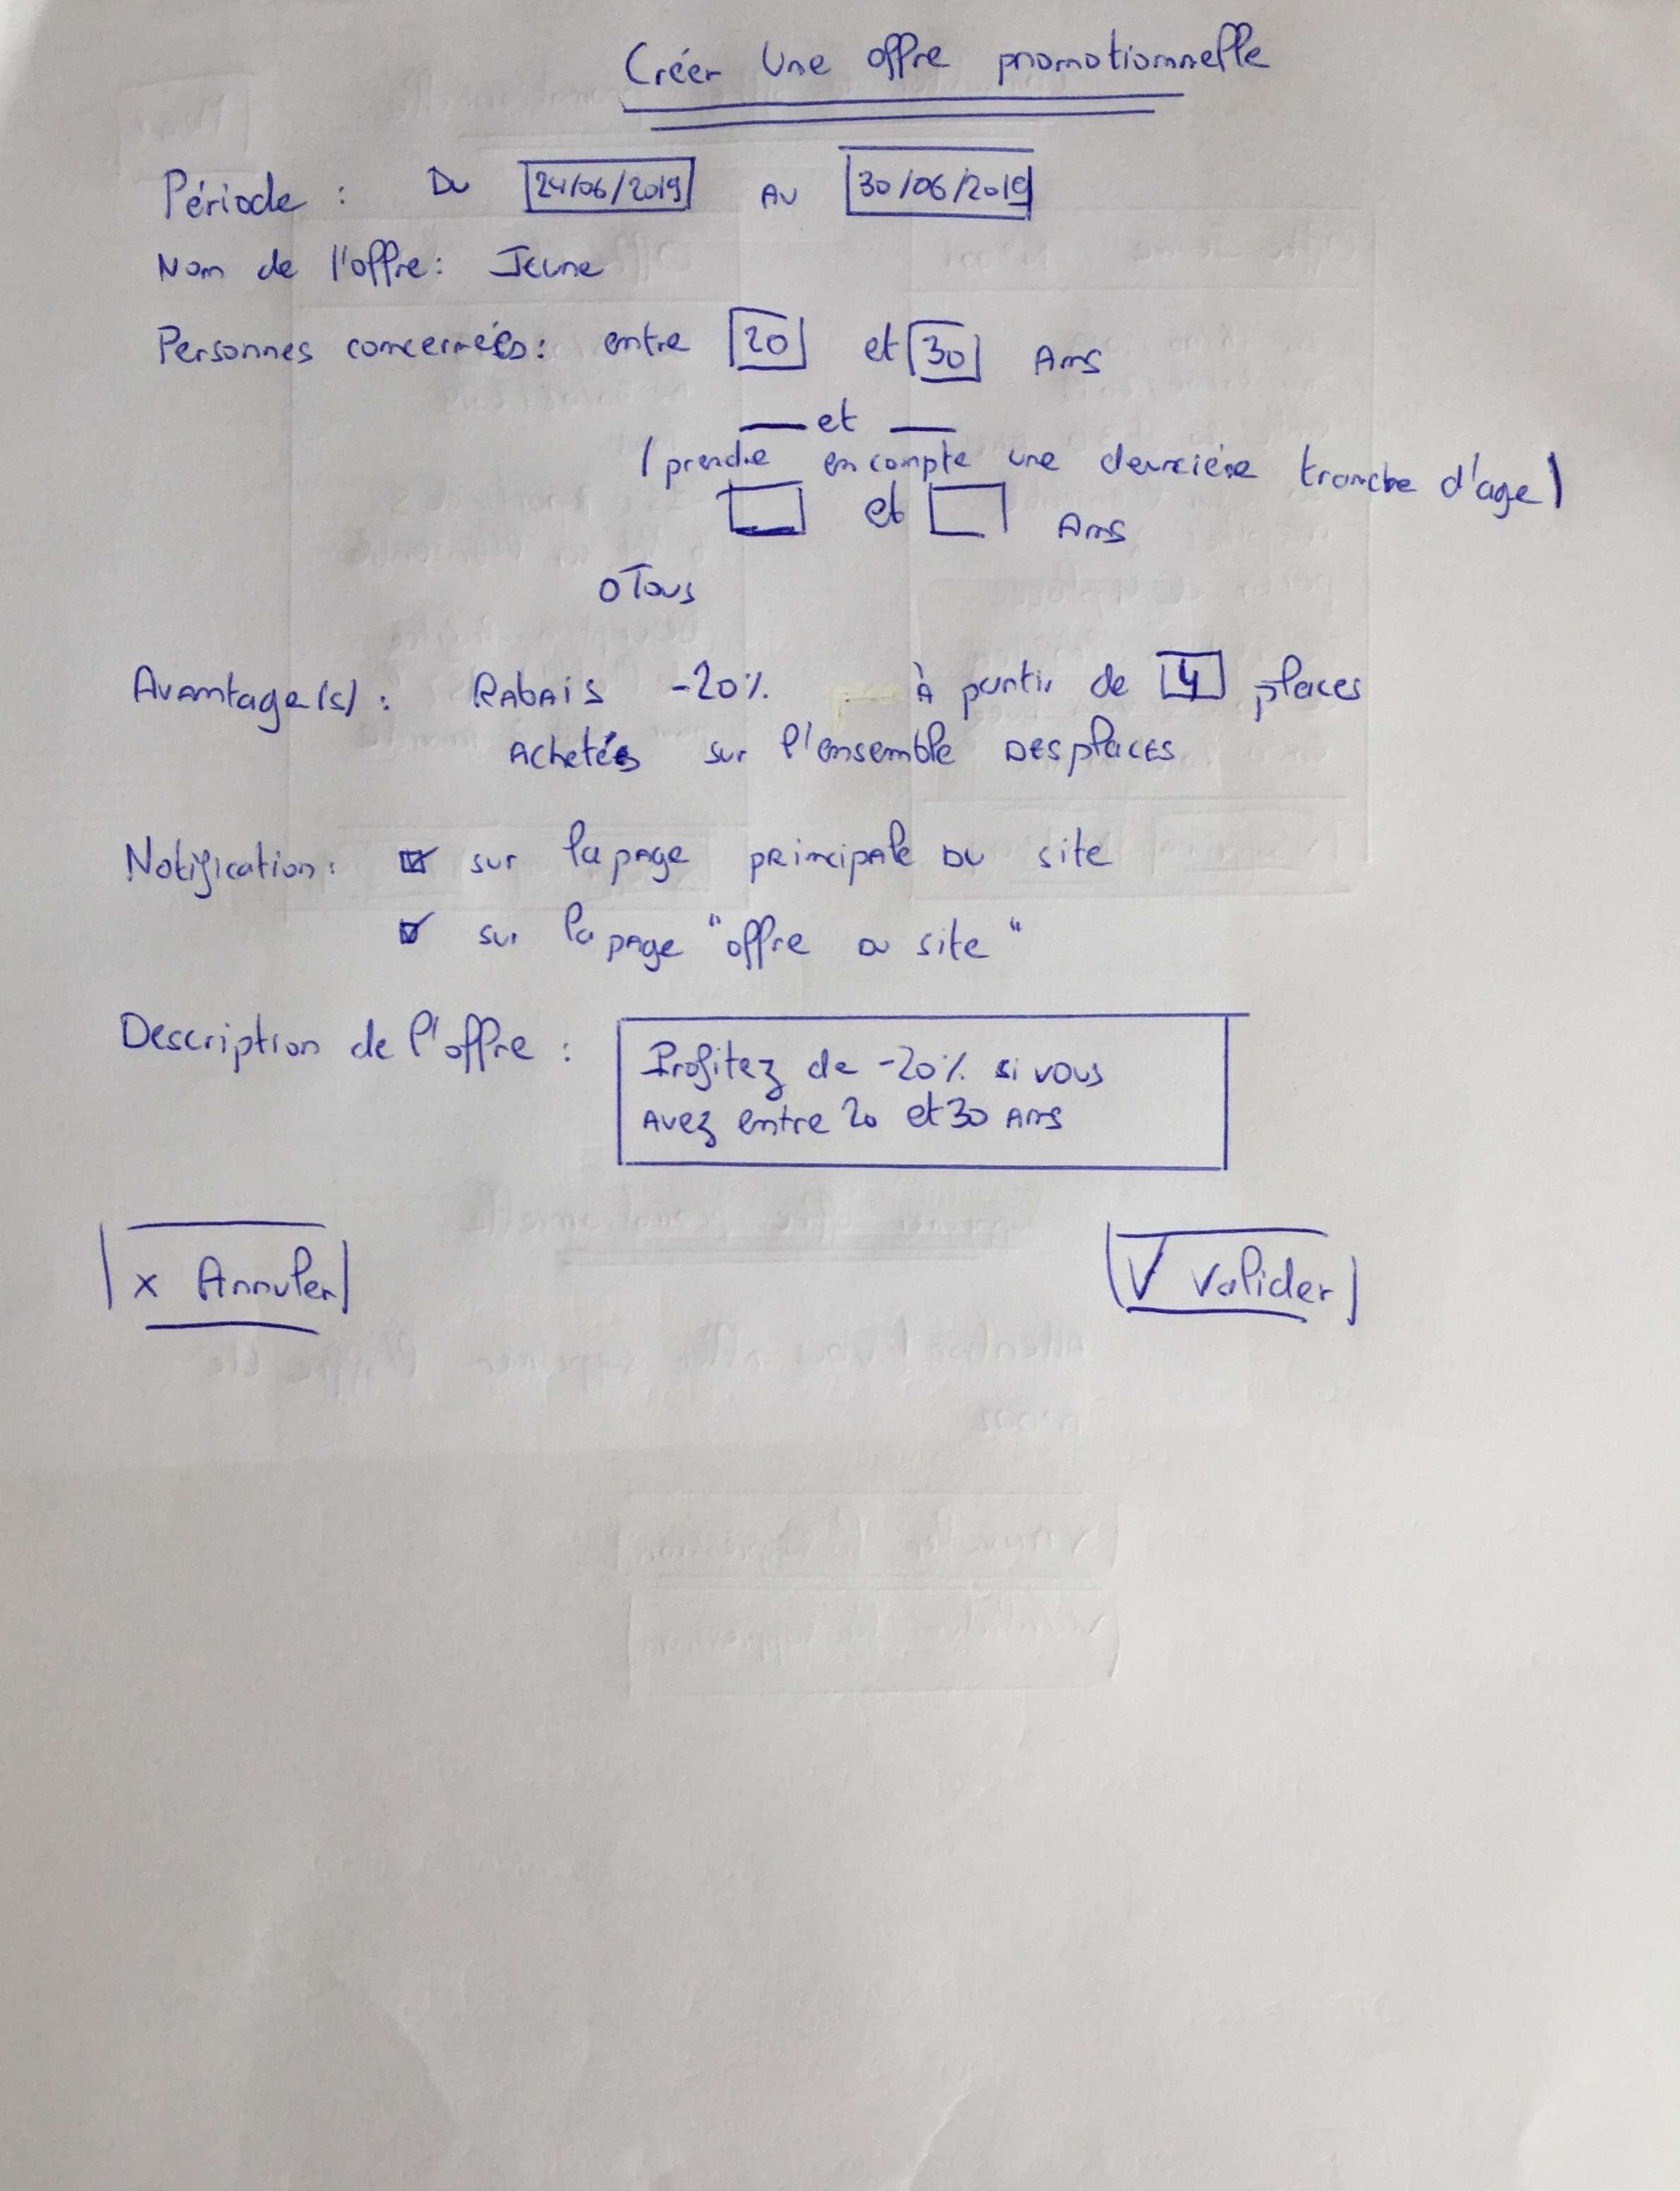 Créer Une offre promotionnelle
Période : Du 24/06/2019 AU 30/06/2019
Nom de l'offre : Jeune
Personnes concernées : entre 20 et 30 Ans
__ et __
(prendre en compte une deuxième tranche d'age)
et Ans
O Tous
Avantage(s) : RABAIS -20% À partir de 4 places
Achetés sur l'ensemble DES places
Notification : ☑ sur la page principale DU site
☑ sur la page "offre du site"
Description de l'offre : Profitez de -20% si vous
Avez entre 20 et 30 Ans
x Annuler
√ Valider